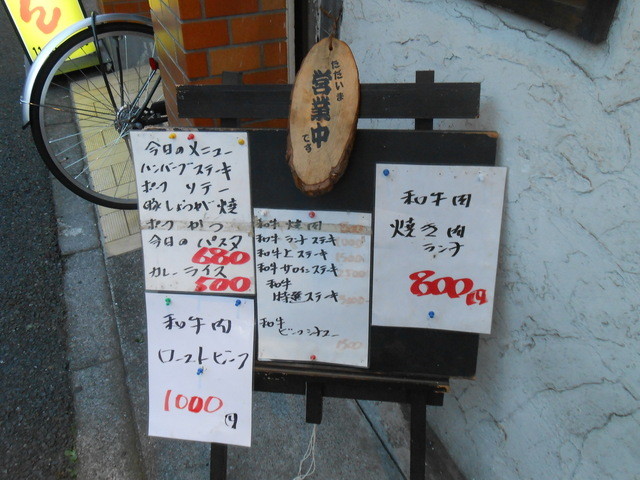 ん
ただいま
営業中
です
今日のメニュー
ハンバーグステーキ
ポークソテー
豚しょうが焼
ポークかつ
今日のパスタ
680
カレーライス
500
和牛焼肉
和牛ランチステーキ
和牛上ステーキ
1500
和牛サロインステーキ
和牛
特選ステーキ
和牛
ビーフシチュー
1500
和牛肉
焼き肉
ランチ
800円
和牛肉
ローストビーフ
1000円